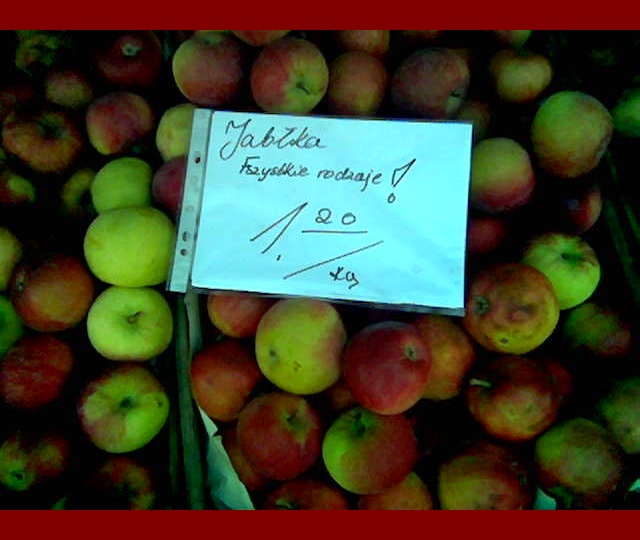 Jabłka
Fszystkie rodzaje!
1.20
/kg